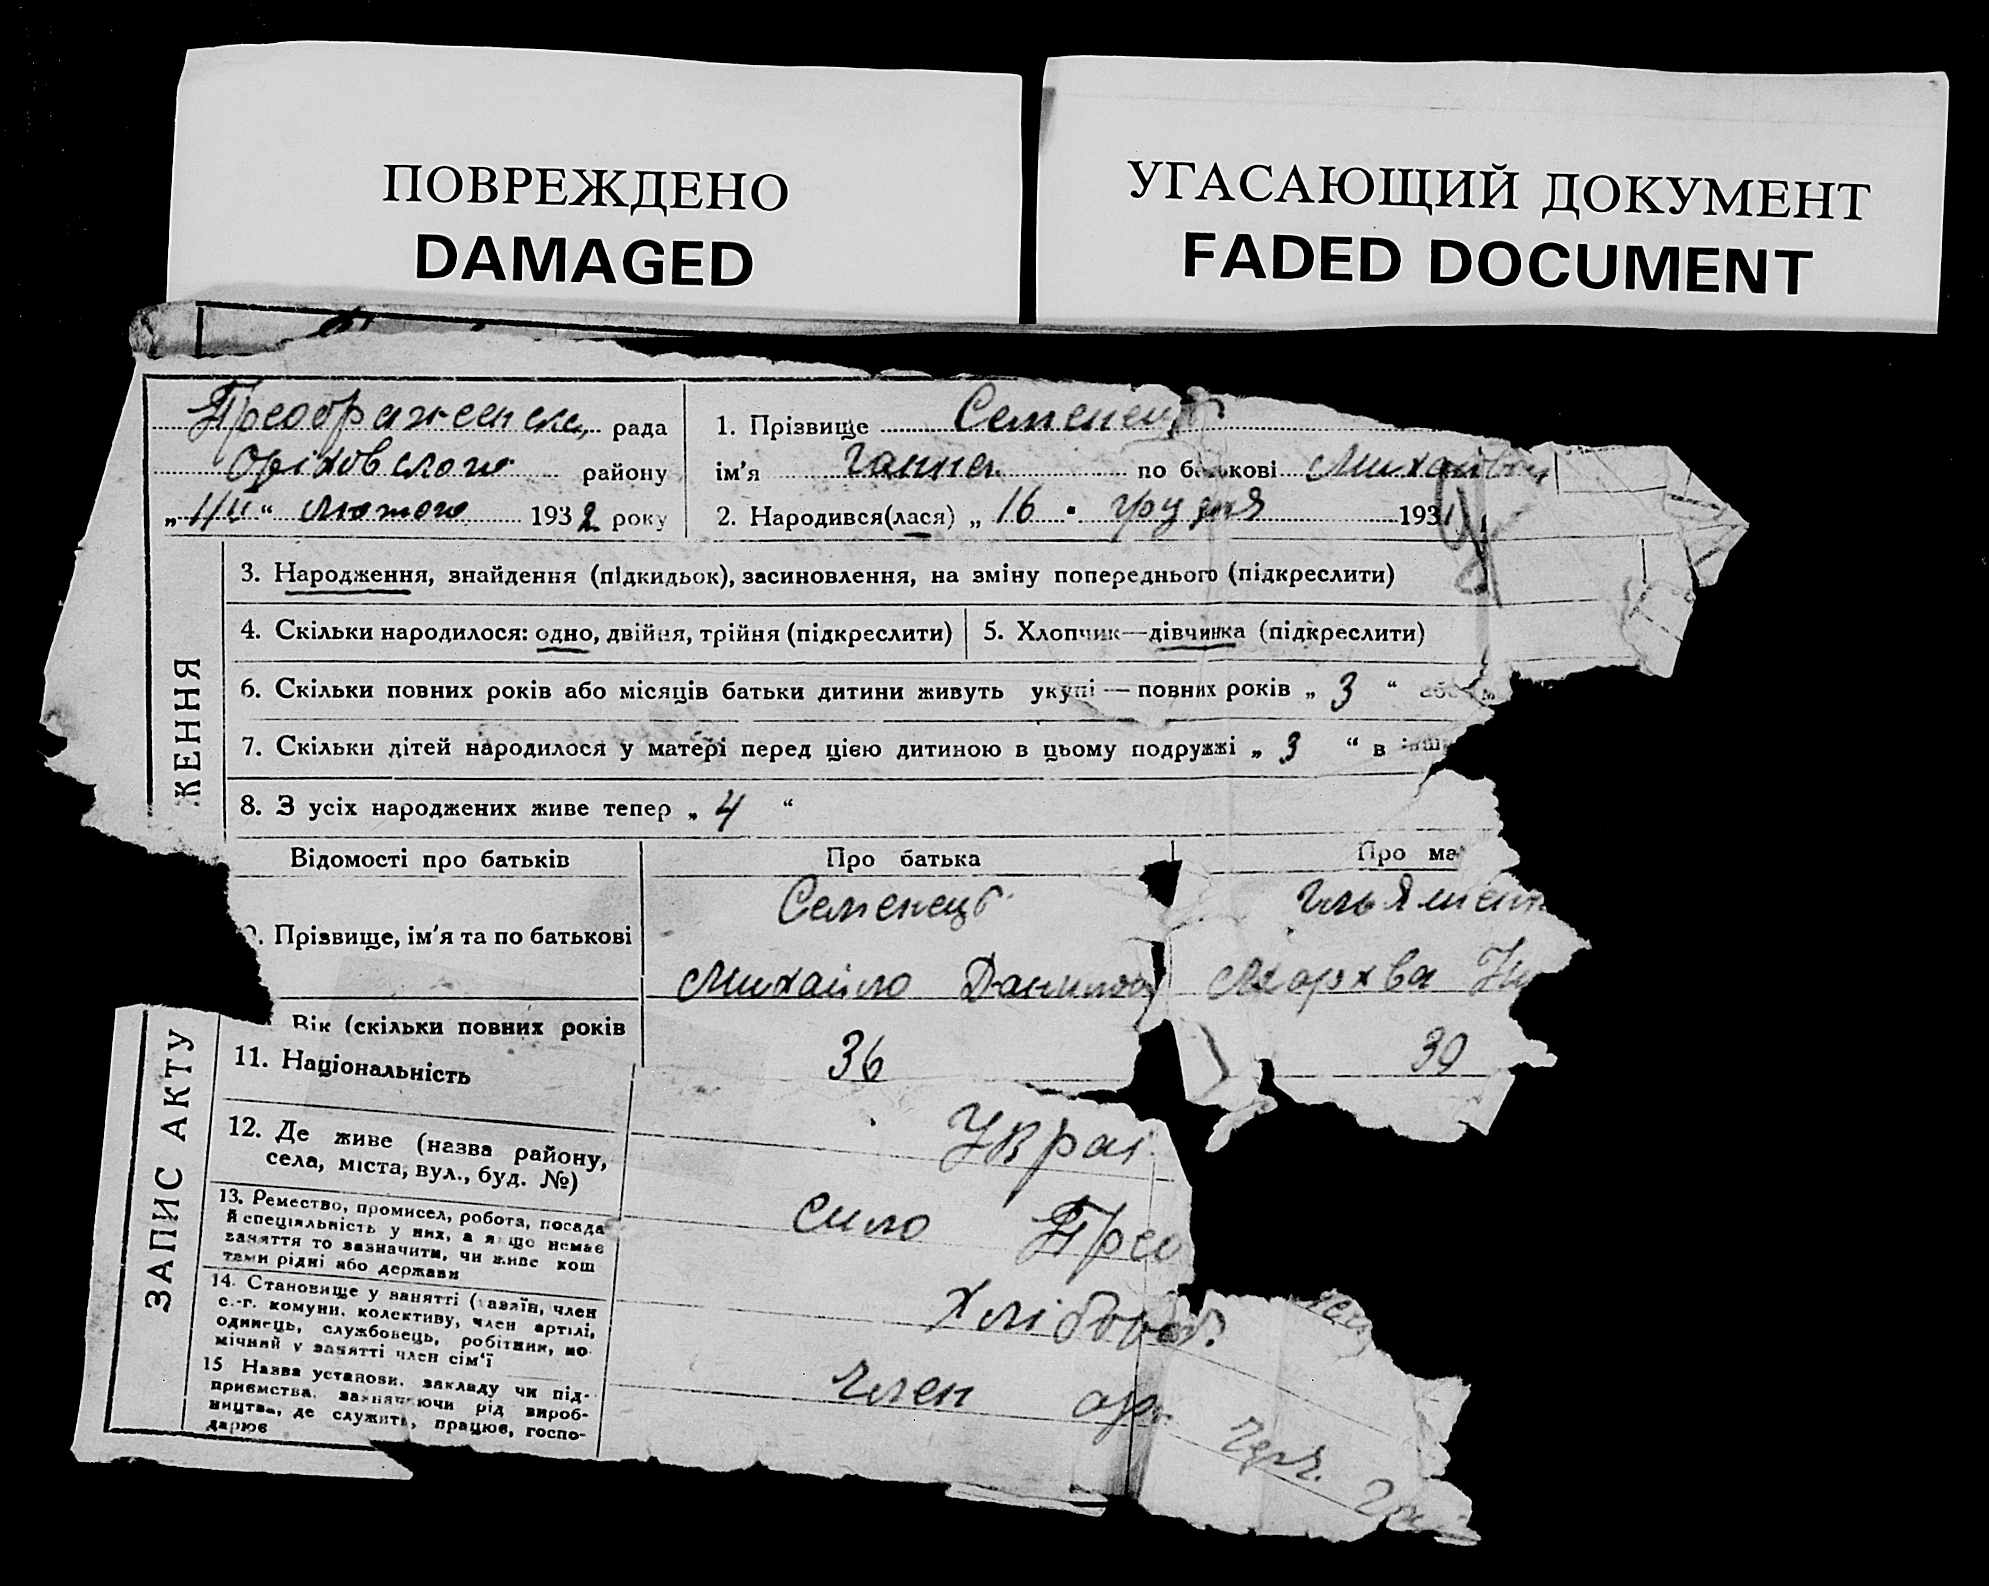 ПОВРЕЖДЕНО
DAMAGED
УГАСАЮЩИЙ ДОКУМЕНТ
FADED DOCUMENT
Преображенська рада
Оріховського району
„ 14 “ лютого 1932 року
1. Прізвище Семенець
ім'я Ганна по батькові Михайлівн
2. Народився(лася) „ 16 “ грудня 1931
3. Народження, знайдення (підкидьок), засиновлення, на зміну попереднього (підкреслити)
4. Скільки народилося: одно, двійня, трійня (підкреслити)
5. Хлопчик—дівчинка (підкреслити)
6. Скільки повних років або місяців батьки дитини живуть укупі — повних років „ 3 “ або м
7. Скільки дітей народилося у матері перед цією дитиною в цьому подружжі „ 3 “ в інш
8. З усіх народжених живе тепер „ 4 “
ЖЕННЯ
Відомості про батьків
Про батька
Про ма
Прізвище, ім'я та по батькові
Семенець
Михайло Данилов
Ільяшен
Мархва
Вік (скільки повних років
36
30
ЗАПИС АКТУ
11. Національність
Украї
12. Де живе (назва району,
села, міста, вул., буд. №)
село Прео
13. Ремество, промисел, робота, посада
й спеціяльність у них, а якщо немає
заняття то зазначити, чи живе кош
тами рідні або держави
Хлібороб
14. Становище у занятті (хазяїн, член
с.-г. комуни, колективу, член артілі,
одинець, службовець, робітник, по-
мічний у занятті член сім'ї
член ар
15 Назва установи, закладу чи під-
приємства, зазначаючи рід вироб-
ництва, де служить, працює, госпо-
дарює